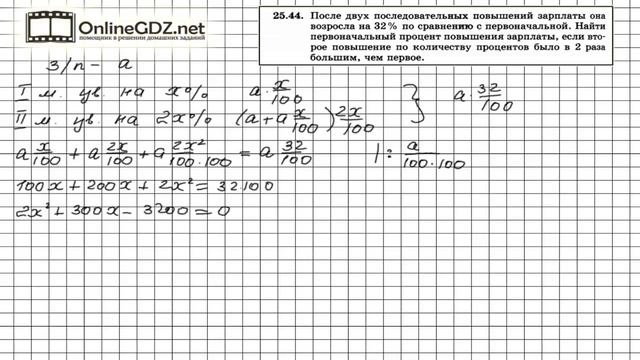 OnlineGDZ.net
помощник в решении домашних заданий
25.44. После двух последовательных повышений зарплаты она
возросла на 32% по сравнению с первоначальной. Найти
первоначальный процент повышения зарплаты, если вто-
рое повышение по количеству процентов было в 2 раза
большим, чем первое.
З/п – a
I м. ув. на x% a · x/100
II м. ув. на 2x% (a + a x/100) 2x/100 } a · 32/100
a x/100 + a 2x/100 + a 2x²/100·100 = a 32/100 | : a/100·100
100x + 200x + 2x² = 32·100
2x² + 300x – 3200 = 0